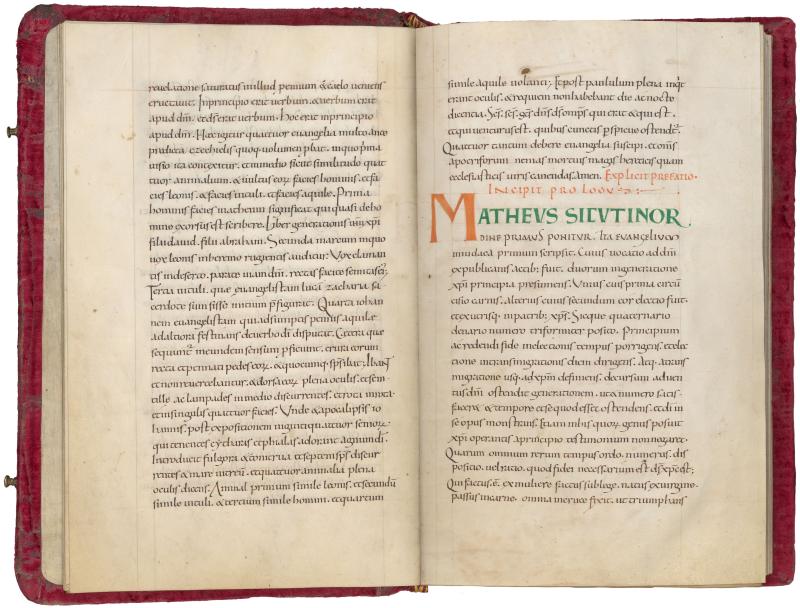 reuelatione saturatus in illud proemium & caelo ueniens
eructauit. Inprincipio erat uerbum. & uerbum erat
apud dm̄. et ds̄ erat uerbum. Hoc erat inprincipio
apud dm̄. Haec igitur quattuor euangelia multo ante
predicta ezechielis quoq; uolumen probat. inquo prima
uisio ita contexitur. et in medio sicut similitudo quat
tuor animalium. & uultus eorum facies hominis. et fa
cies leonis. & facies uituli. et facies aquile. Prima
hominis facies matheum significat qui quasi deho
mine exorsus est scribere. Liber generationis ihū xp̄i
filii dauid. filii abraham. Secunda marcum inquo
uox leonis inheremo rugientis auditur. Vox claman
tis indeserto. parate uiam dn̄i. rectas facite semitas eius.
Tercia uituli. quae euangelistam lucam zacharia sa
cerdote sumsisse initium prefigurat. Quarta iohan
nem euangelistam qui adsumptis pennis aquilae
ad altiora festinans deuerbo dī disputat. Cetera que
sequuntur ineundem sensum proficiunt. crura eorum
recta et pennati pedes eorum. & quocumq; sps̄ ibat. Ibant
et non reuertebantur. & dorsa eorum plena oculis. et scin
tille ac lampades in medio discurrentes. et rota inrota
et insingulis quattuor facies. Vnde & apocalipsis io
hannis. post expositionem uiginti quattuor seniorum
qui tenentes cytharas et phialas. adorant agnum dī.
Introducit fulgora & tonitrua et septem sps̄ discur
rentes & mare uitreum. et quattuor animalia plena
oculis dicens. Animal primum simile leonis. et secundum
simile uituli. & tertium simile homini. et quartum
simile aquile uolanti; Et post paululum plena inquit
erant oculis. & requiem non habebant die ac nocte
dicentia. Scs̄. scs̄. scs̄ dn̄s ds̄ omnps̄ qui erat & qui est.
et qui uenturus est. quibus cunctis perspicue ostenditur.
Quattuor tantum debere euangelia suscipi. et omnes
apocriforum nenias mortuis magis hereticis quam
ecclesiasticis uiris canendas. Amen. Explicit prefatio.
Incipit prologus
MATHEVS SICVTINOR
DINE PRIMVS PONITVR. Ita EVANGELIVM
iniudaea primum scripsit. Cuius uocatio ad dm̄
expublicanis actibus fuit. duorum ingeneratione
xp̄i principia presumens. Vnius cuius prima circum
cisio carnis. alterius cuius secundum cor electio fuit.
et exutrisq; inpatribus xp̄s. Sicque quaternario
denario numero triformiter posito. Principium
acredendi fide inelectionis tempus porrigens. etelec
tione intransmigrationis diem dirigens. Atq; atrans
migratione usq; ad xp̄m definiens. decursam aduen
tus dn̄i ostendit generationem. ut & numero satis
faciens & tempore et se quod esset ostendens. et dī in
se opus monstrans. Etiam inhis quorum genus posuit
xp̄i operantis aprincipio testimonium non negaret.
Quarum omnium rerum tempus ordo. numerus. dis
positio. uel ratio. quod fidei necessarium est ds̄ xp̄s est;
Qui factus est ex muliere factus sub lege. natus exuirgine.
passus incarne. omnia incruce fixit. ut triumphans